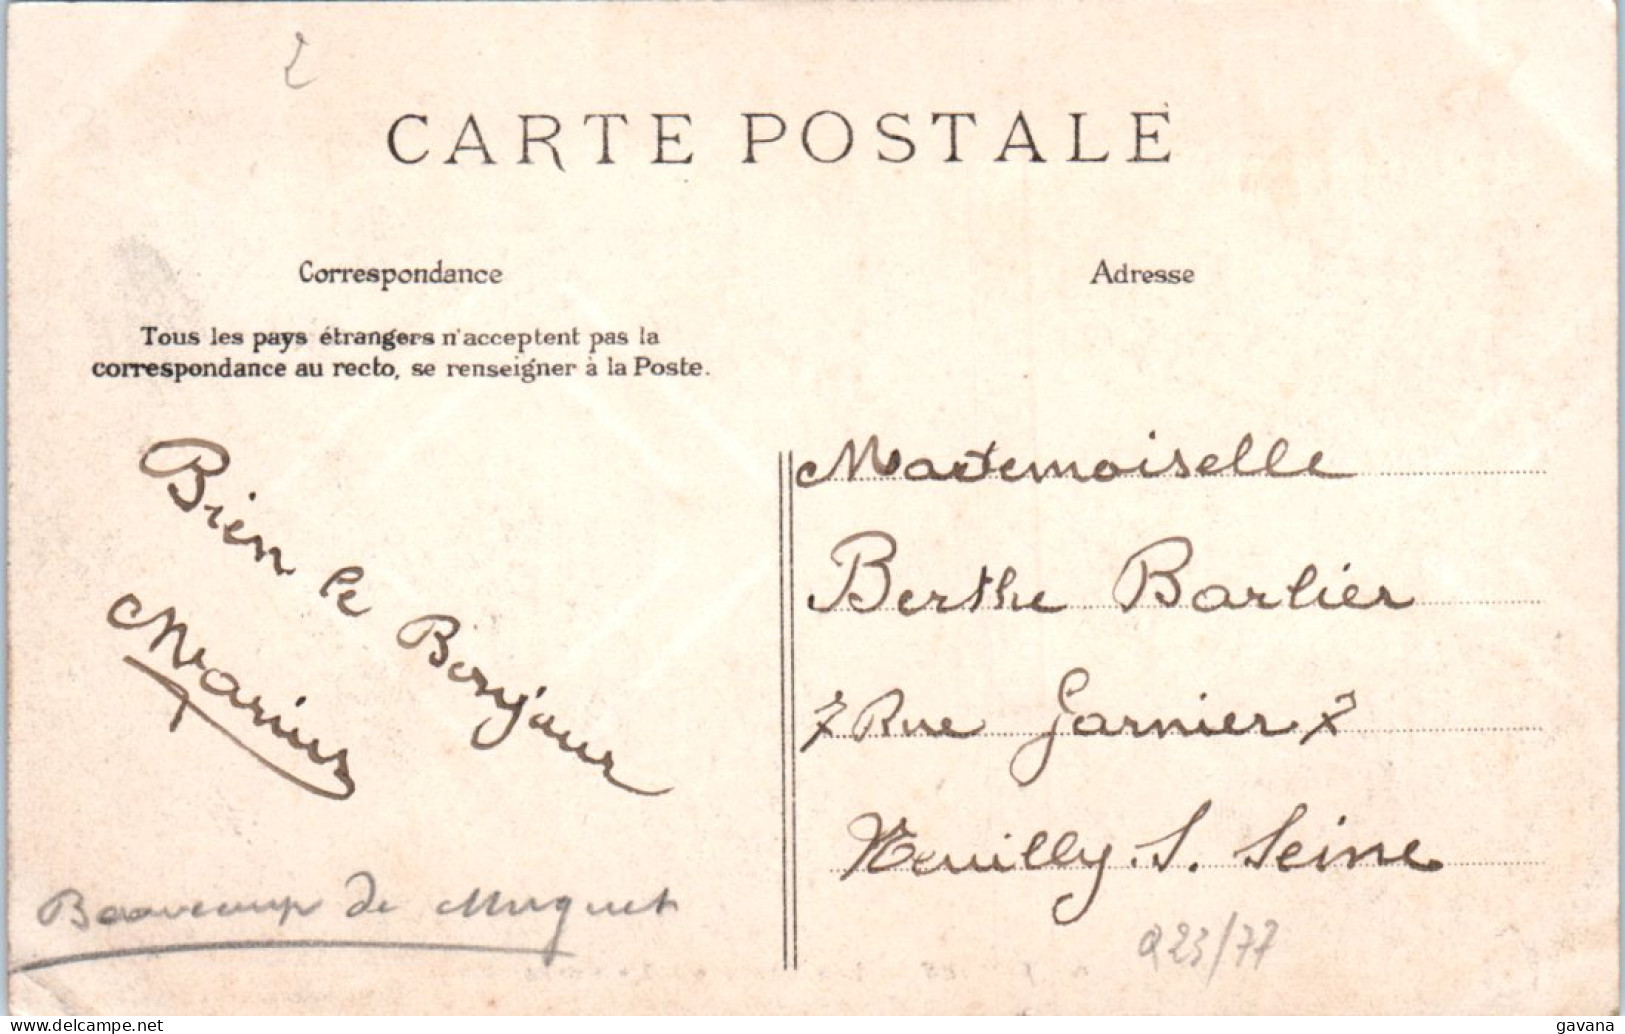 2
CARTE POSTALE
Correspondance
Tous les pays étrangers n'acceptent pas la
correspondance au recto, se renseigner à la Poste.
Bien le Bonjour
Marius
Beaucoup de Muguet
Adresse
Mademoiselle
Berthe Barlier
7 Rue Garnier 7
Neuilly. S. Seine
Q23/77
delcampe.net
gavana